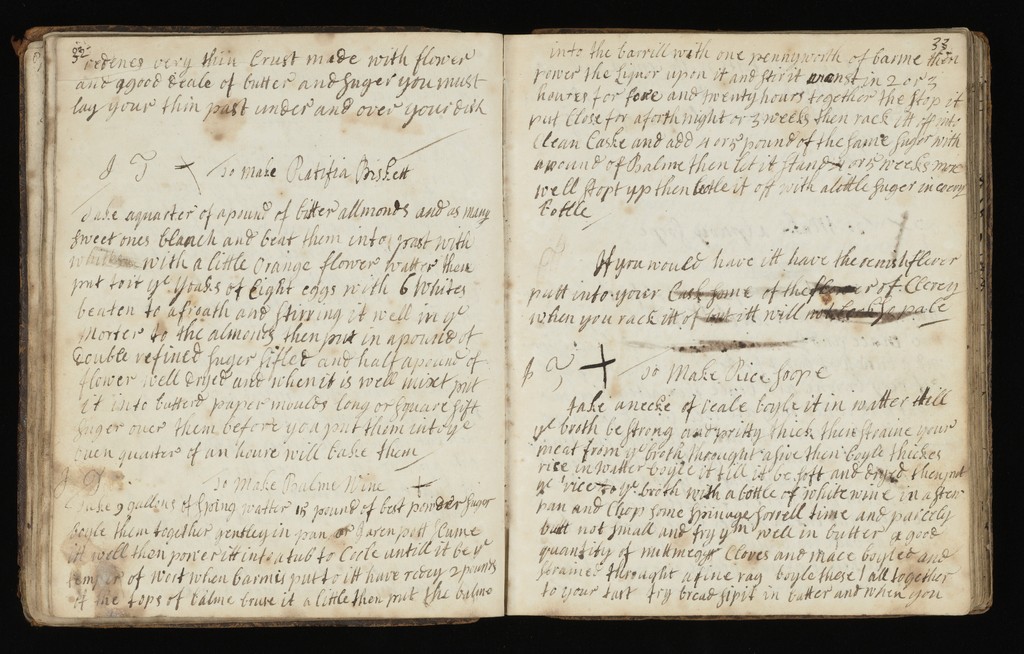 32
ordenes very thin Crust made with flower
and agood deale of butter and suger you must
lay your thin past under and over your dish
To make Ratifia Briskett
Take aquarter of apound of bitter allmonds and as many
sweet ones blanch and beat them into past with
with a little orange flower watter then
put to it ye Yoaks of Eight eggs with 6 Whites
beaten to afroath and stirring it well in ye
Morter to the almonds then put in apound of
Double refined suger sifted and half apound of
flower well dryed and when it is well mixt put
it into butterd paper moulds long or square sift
suger over them before you put them into ye
oven quarter of an houre will bake them
To Make Balme Wine
Take 9 gallons of spring watter 15 pound of best powder suger
boyle them together gently in pan or
itt well then power itt into atub to Coole untill it be ye
temper of wort when barme is put to itt have redey 2 pounds
of the tops of balme bruse it a little then put the balme
33
into the barrill with one pennyworth of barme then
power the liquor upon it and stir it in 2 or 3
houres for fore and twenty hours together the stop it
put Close for aforthnight or 3 weeks then rack itt of into
Clean Caske and add 4 or 5 pound of the same suger with
apound of Balme then let it stand 4 or 5 weeks more
well stopt up then botle it off with alittle suger in every
bottle
If you would have itt have the renish flever
putt into your Cask some of the flower of Clerey
when you rack itt of itt will pale
To Make Rice Soope
Take a necke of veale boyle it in watter till
ye broth be strong and pritty thick then straine your
meat from ye broth throught asive then boyle
rice in watter boyle it till it be soft and dryed then put
ye rice to ye broth with a bottle of white wine in astew
pan and Chop some spinage sorrell time and parcely
butt not small and fry ym well in butter a good
quantity of nutmegs Cloves and mace boyled and
straned throught afine rag boyle these all together
to your tast fry bread sipit in butter and when you